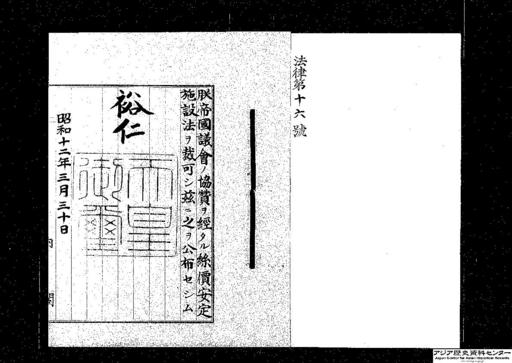 法律第十六號
朕帝國議會ノ協贊ヲ經タル絲價安定
施設法ヲ裁可シ玆ニ之ヲ公布セシム
裕仁
天皇御璽
昭和十二年三月三十日
内閣
アジア歴史資料センター
Japan Center for Asian Historical Records